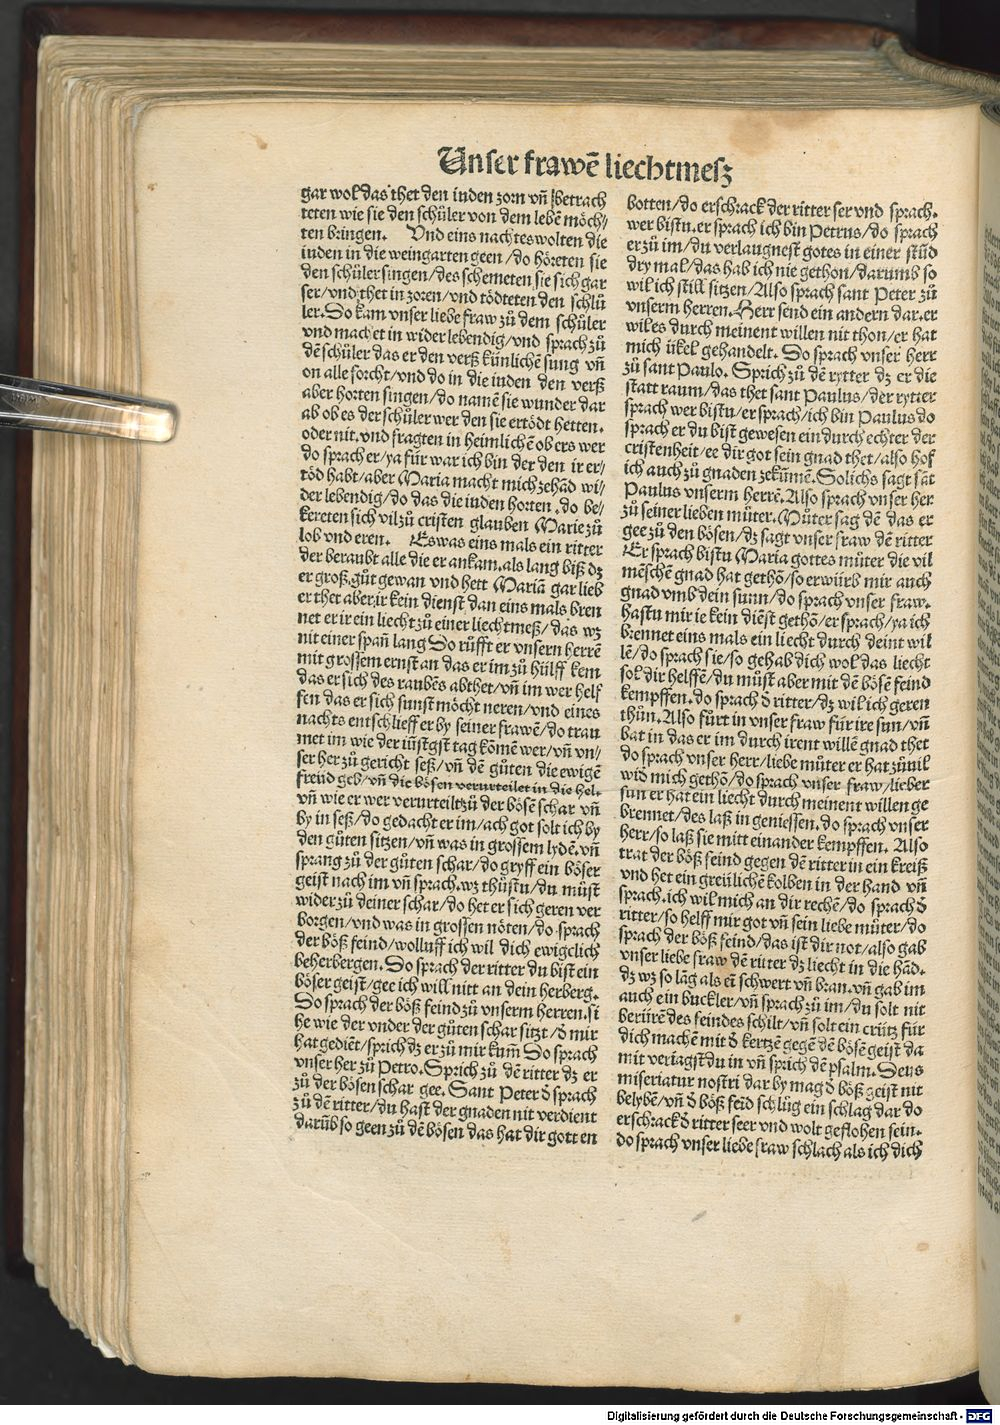 Unser frawē liechtmesz
gar wol das thet den iuden zorn vn̄ betrach
teten wie sie den schüler von dem lebē möch/
ten bringen. Vnd eins nachtes wolten die
iuden in die weingarten geen/do höreten sie
den schüler singen/des schemeten sie sich gar
ser/vnd thet in zoren/vnd tödteten den schü
ler. So kam vnser liebe fraw zů dem schüler
vnd machet in wider lebendig/vnd sprach zů
dē schüler das er den verß künlichē sung vn̄
on alle forcht/vnd do in die iuden den verß
aber horten singen/do namē sie wunder dar
ab ob es der schüler wer den sie ertödt hetten.
oder nit. vnd fragten in heimlichē ob ers wer
do sprach er/ya für war ich bin der den ir er/
töd habt/aber Maria macht mich zehād wi/
der lebendig/do das die iuden horten. do be/
kereten sich vil zů cristen glauben Marie zů
lob vnd eren. Es was eins mals ein ritter
der beraubt alle die er ankam. als lang biß dz
er groß gůt gewan vnd hett Mariā gar lieb
er thet aber ir kein dienst dan eins mals bren
net er ir ein liecht zů einer liechtmeß/das wz
nit einer span̄ lang So růfft er vnsern herrē
mit grossem ernst an das er im zů hülff kem
das er sich des raubēs abthet/vn̄ im wer helf
fen das er sich sunst möcht neren/vnd eines
nachts entschlieff er by seiner frawē/do trau
met im wie der iüngst tag kōmē wer/vn̄ vn/
ser her zů gericht seß/vn̄ dē gůten die ewigē
freud geb/vn̄ die bösen verurteilet in die hel.
vn̄ wie er wer verurteilt zů der bösē schar vn̄
by in seß/do gedacht er im/ach got solt ich by
den gůten sitzen/vn̄ was in grossem lydē. vn̄
sprang zů der gůten schar/do gryff ein böser
geist nach im vn̄ sprach. wz thůstu/du můst
wider zů deiner schar/do het er sich geren ver
borgen/vnd was in grossen nöten/do sprach
der böß feind/wolluff ich wil dich ewigclich
beherbergen. So sprach der ritter du bist ein
böser geist/gee ich will nitt an dein herberg.
So sprach der böß feind zů vnserm herren. si
he wie der vnder der gůten schar sitzt/d̄ mir
hat gediēt/sprich dz er zů mir kum̄ So sprach
vnser her zů Petro. Sprich zů dē ritter dz er
zů der bösen schar gee. Sant Peter d̄ sprach
zů dē ritter/du hast der gnaden nit verdient
darūb so geen zů dē bösen das hat dir gott en
botten/do erschrack der ritter ser vnd sprach.
wer bistu. er sprach ich bin Petrus/do sprach
er zů im/du verlaugnest gotes in einer stūd
dry mal/das hab ich nie gethon/darumb so
wil ich still sitzen/Also sprach sant Peter zů
vnserm herren. Herr send ein andern dar. er
wil es durch meinent willen nit thon/er hat
mich übel gehandelt. So sprach vnser herr
zů sant Paulo. Sprich zů dē rytter dz er die
statt raum/das thet sant Paulus/der rytter
sprach wer bistu/er sprach/ich bin Paulus do
sprach er du bist gewesen ein durch echter der
cristenheit/ee dir got sein gnad thet/also hof
ich auch zů gnaden zekūmē. Solichs sagt sāt
Paulus vnserm herrē. Also sprach vnser her
zů seiner lieben můter. Můter sag dē das er
gee zů den bösen/dz sagt vnser fraw dē ritter
Er sprach bistu Maria gottes můter die vil
mēschē gnad hat gethō/so erwürb mir auch
gnad vmb dein sunn/do sprach vnser fraw.
hastu mir ie kein diēst gethō/er sprach/ya ich
brennet eins mals ein liecht durch deint wil
lē/do sprach sie/so gehab dich wol das liecht
sol dir helffē/du můst aber mit dē bösē feind
kempffen. do sprach d̄ ritter/dz wil ich geren
thůn. Also fůrt in vnser fraw für ire sun/vn̄
bat in das er im durch irent willē gnad thet
do sprach vnser herr/liebe můter er hat zůuil
wid mich gethō/do sprach vnser fraw/lieber
sun er hat ein liecht durch meinent willen ge
brennet/des laß in geniessen. do sprach vnser
herr/so laß sie mitt einander kempffen. Also
trat der böß feind gegen dē ritter in ein kreiß
vnd het ein greülichē kolben in der hand vn̄
sprach. ich wil mich an dir rechē/do sprach d̄
ritter/so helff mir got vn̄ sein liebe můter/do
sprach der böß feind/das ist dir not/also gab
vnser liebe fraw dē ritter dz liecht in die hād.
dz wz so lāg als eī schwert vn̄ bran. vn̄ gab im
auch ein buckler/vn̄ sprach zů im/du solt nit
berürē des feindes schilt/vn̄ solt ein crütz für
dich machē mit d̄ kertzē gegē dē bösē geist da
mit veriagst du in vn̄ sprich dē psalm. Deus
miseriatur nostri dar by mag d̄ böß geist nit
belybē/vn̄ d̄ böß feīd schlůg ein schlag dar do
erschrack d̄ ritter seer vnd wolt geflohen sein.
do sprach vnser liebe fraw schlach als ich dich
Digitalisierung gefördert durch die Deutsche Forschungsgemeinschaft - DFG